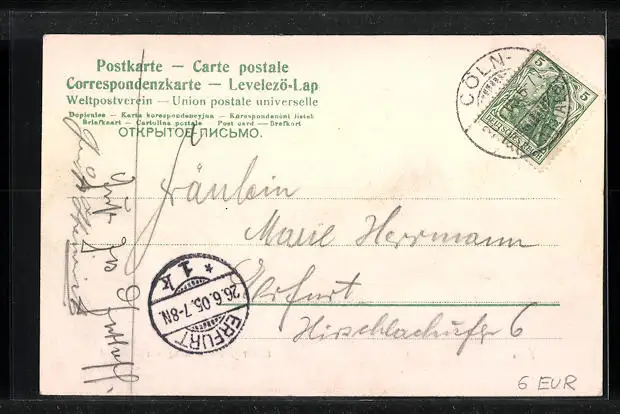 Postkarte — Carte postale
Correspondenzkarte — Levelező-Lap
Weltpostverein — Union postale universelle
Dopisnice — Karta korespondencyjna — Korespondenčni listek
Briefkaart — Cartolina postale Post card — Brefkort
ОТКРЫТОЕ-ПИСЬМО.
CÖLN-
5
5
DEUTSCHES REICH
Fräulein
Marie Herrmann
Erfurt
Hirschlachufer 6
* 1 k
26.6.05.7-8N
ERFURT
6 EUR